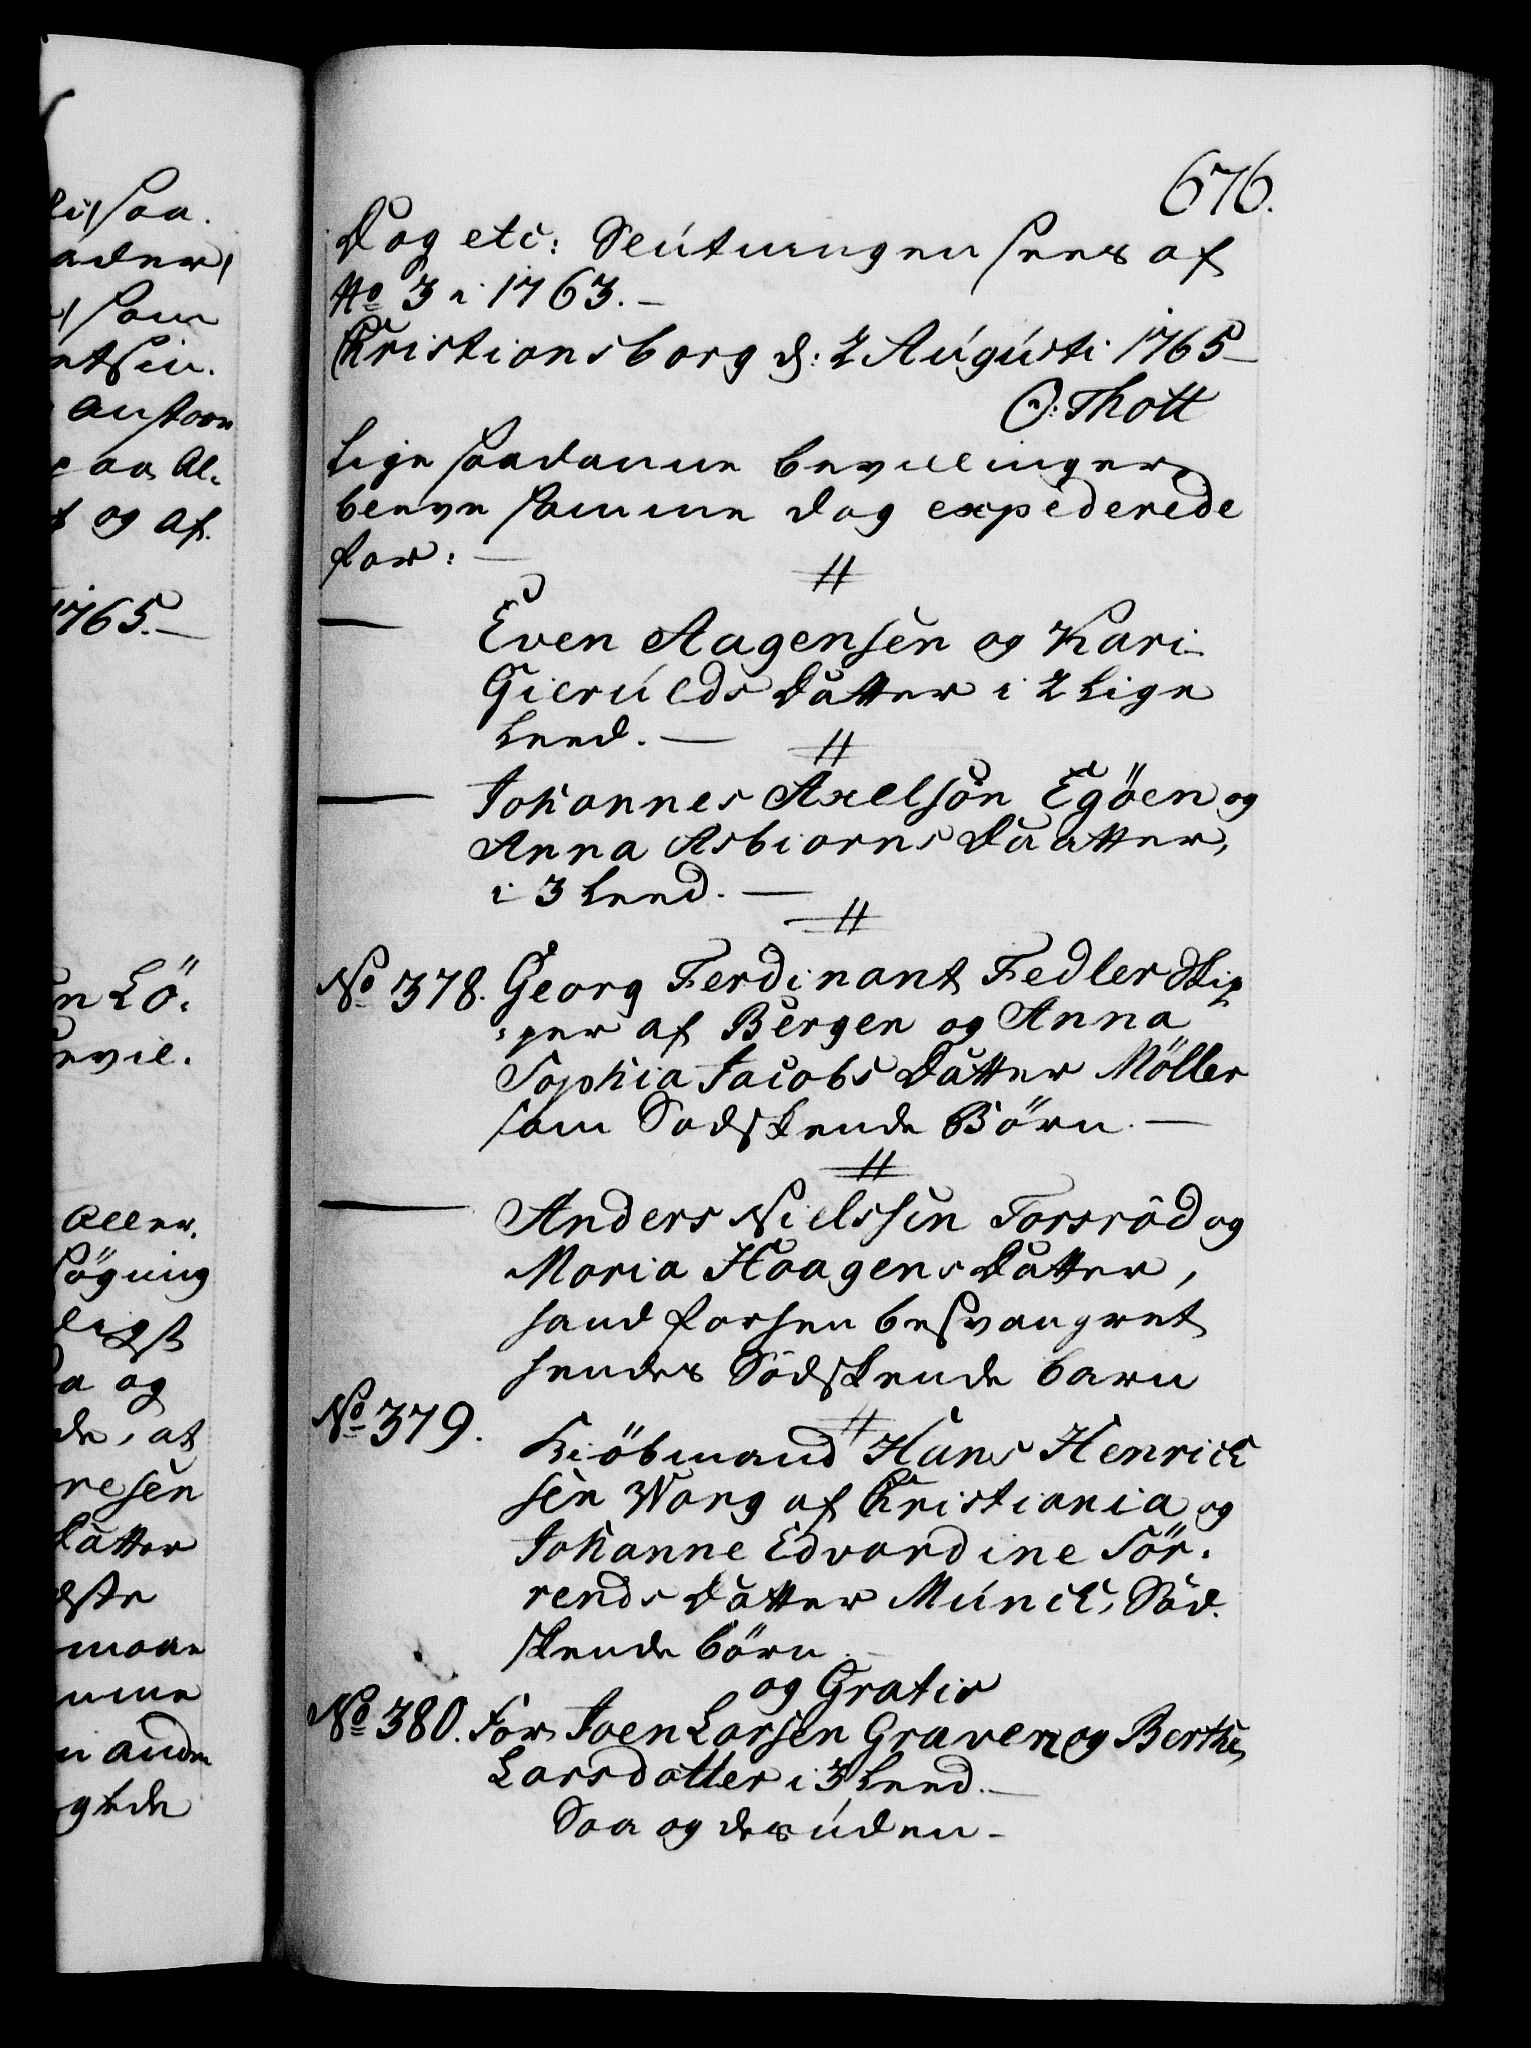 676.
Dog etc: Slutningen sees af
No 3 i 1763.-
Christiansborg d: 2 Augusti 1765-
O: Thott
Lige saadanne bevillinger
bleve samme dag expederede
for: -
Even Aagensen og Kari
Gierulds Datter i 2 Lige
Leed. -
Johannes Axelsön Egöen og
Anna Asbiorns Daatter,
i 3 Leed. -
No 378. Georg Ferdinant Fedler
af Bergen og Anna
Sophia Jacobs Datter Möller
som Sodskende Börn. -
Anders Nielssen Torsröd og
Maria Haagens Datter,
hand forhen besvangret
hendes Södskende barn
No 379.
Kiöbmand Hans Henrich
sen Wang af Christiania og
Johanne Edvardine Sör.
rends Datter Munch, Söd.
skende börn.-
og Gratis
No 380. For Joen Larsen Graven og Berthe
Larsdatter i 3 Leed.-
Saa og desuden-
li saa.
som
ansaae
paa Al.
og af.
1765.-
en Lö.
bevil.
Aller.
Søgning
og
de, at
resen
datter
maae
andre